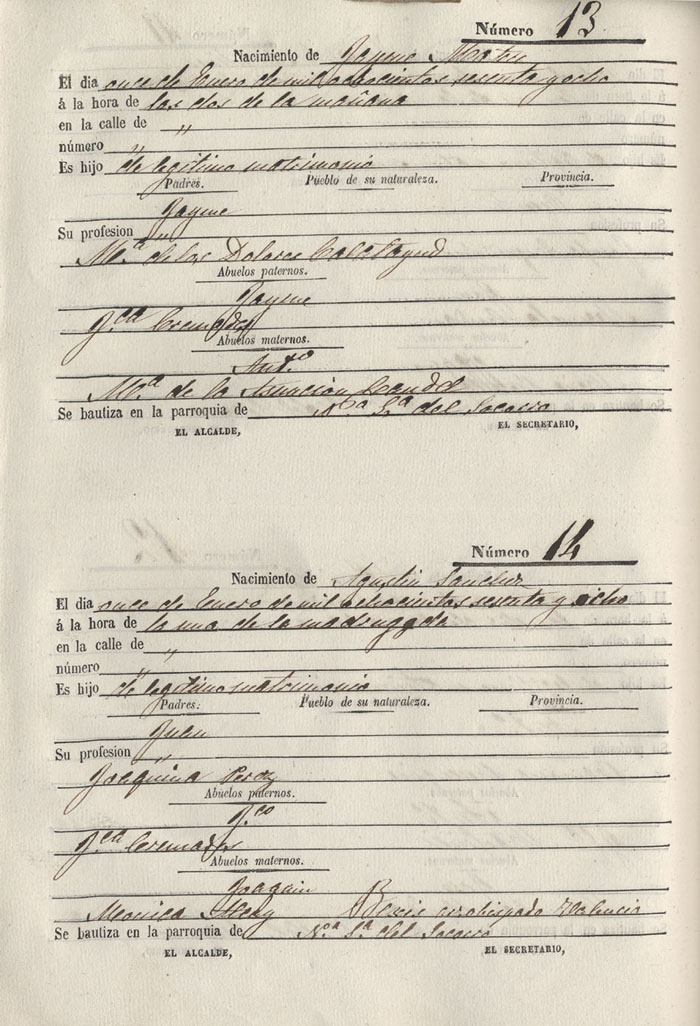 Número 13
Nacimiento de Jayme
El dia once de Enero de mil ochocientos sesenta y ocho
á la hora de las dos de la mañana
en la calle de "
número "
Es hijo de legitimo matrimonio
Padres. Pueblo de su naturaleza. Provincia.
Jayme
Su profesion "
Mª de los Dolores Calatayud
Abuelos paternos.
Jayme
Fca Cremades
Abuelos maternos.
Antº
Mª de la Asuncion
Se bautiza en la parroquia de Nª Sª del Socorro
EL ALCALDE, EL SECRETARIO,
Número 14
Nacimiento de Agustin Sanchez
El dia once de Enero de mil ochocientos sesenta y ocho
á la hora de la una de la madrugada
en la calle de "
número "
Es hijo de legitimo matrimonio
Padres. Pueblo de su naturaleza. Provincia.
Juan
Su profesion "
Joaquina
Abuelos paternos.
Fco
Fca Cremades
Abuelos maternos.
Joaquin
Monica arzobispado Valencia
Se bautiza en la parroquia de Nª Sª del Socorro
EL ALCALDE, EL SECRETARIO,